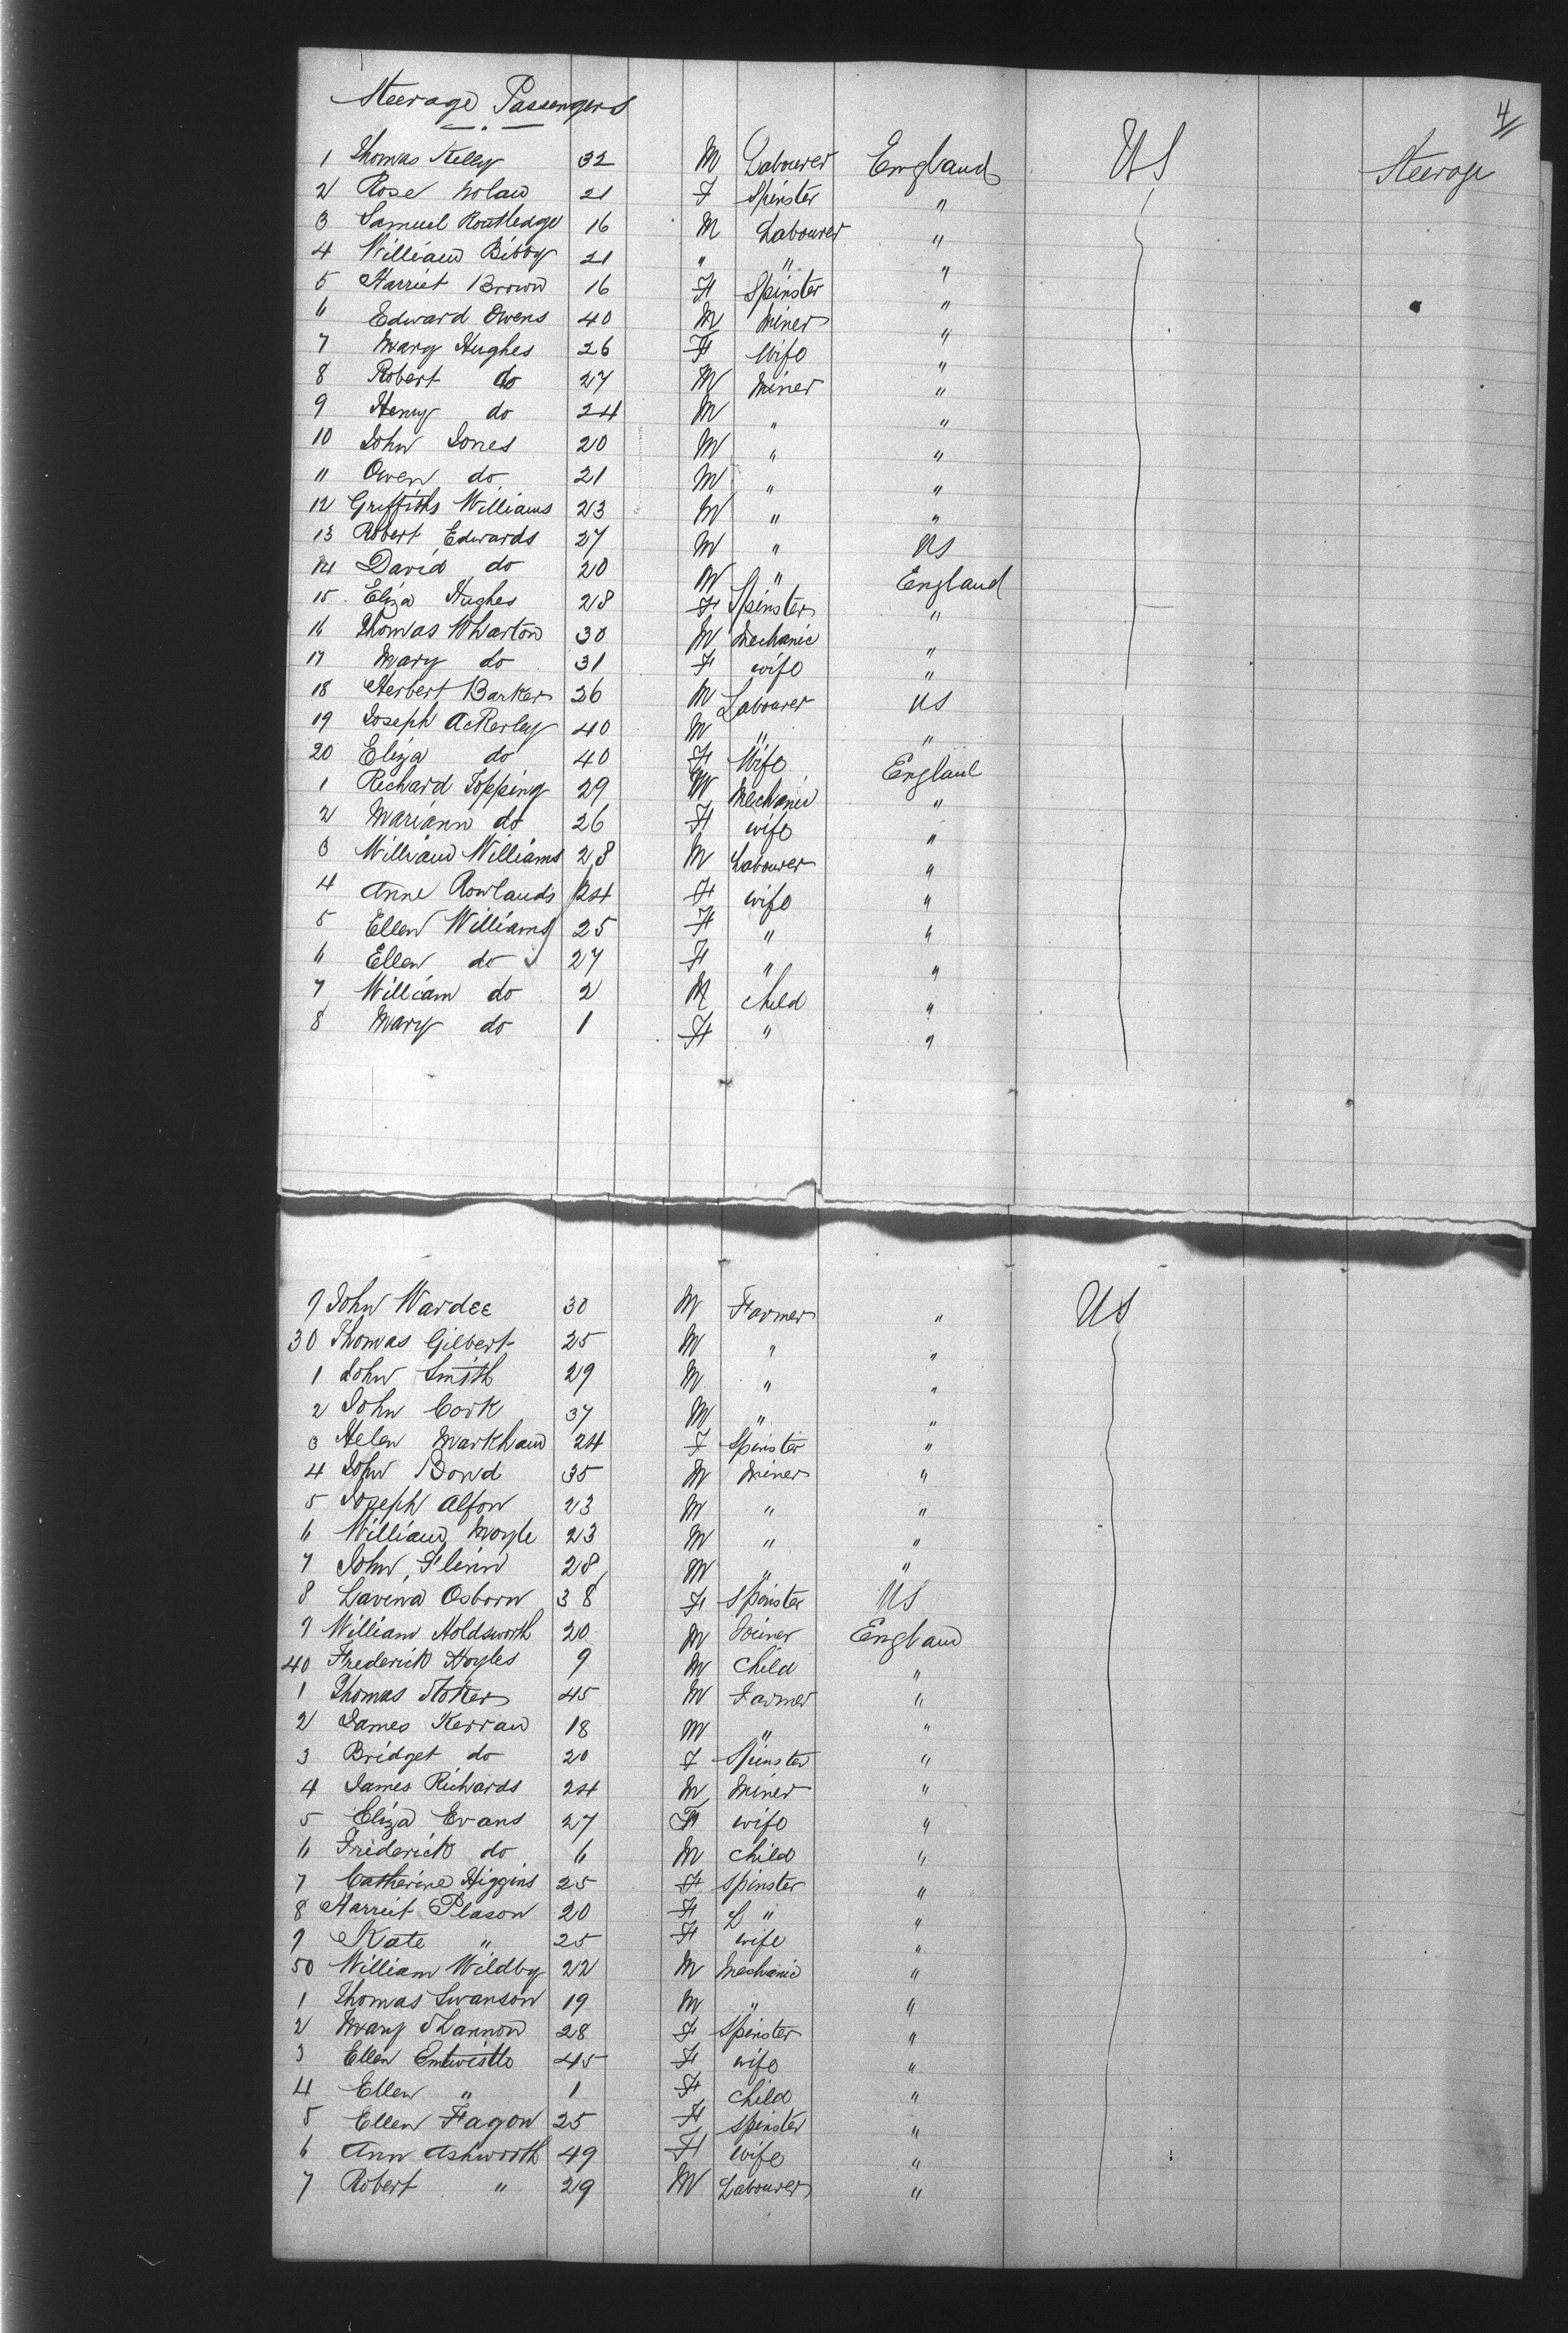 4
Steerage Passengers
1 Thomas Kelly 32 M Labourer England US Steerage
2 Rose Nolan 21 F Spinster "
3 Samuel Routledge 16 M Labourer "
4 William Bibby 21 " " "
5 Harriet Brown 16 F Spinster "
6 Edward Owens 40 M Miner "
7 Mary Hughes 26 F Wife "
8 Robert do 27 M Miner "
9 Henry do 24 M " "
10 John Jones 20 M " "
11 Owen do 21 M " "
12 Griffiths Williams 23 M " "
13 Robert Edwards 27 M " US
14 David do 20 M " England
15 Eliza Hughes 28 F Spinster "
16 Thomas Wharton 30 M Mechanic "
17 Mary do 31 F wife "
18 Herbert Barker 26 M Labourer US
19 Joseph Ackerley 40 M " "
20 Eliza do 40 F Wife England
1 Richard Topping 29 M Mechanic "
2 Mariann do 26 F wife "
3 William Williams 28 M Labourer "
4 Anne Rowlands 24 F wife "
5 Ellen Williams 25 F " "
6 Ellen do 27 F " "
7 William do 2 M child "
8 Mary do 1 F " "
9 John Wardle 30 M Farmer " US
30 Thomas Gilbert 25 M " "
1 John Smith 29 M " "
2 John Cork 37 M " "
3 Helen Markham 24 F Spinster "
4 John Dowd 35 M Miner "
5 Joseph 23 M " "
6 William Moyle 23 M " "
7 John Flinn 28 M " "
8 Lavina Osborn 38 F Spinster US
9 William Holdsworth 20 M Joiner England
40 Frederick Hoyles 9 M Child "
1 Thomas 45 M Farmer "
2 James Kerran 18 M " "
3 Bridget do 20 F Spinster "
4 James Richards 24 M Miner "
5 Eliza Evans 27 F wife "
6 Friderick do 6 M child "
7 Catherine Higgins 25 F Spinster "
8 Harriet Plason 20 F " "
9 Kate " 25 F wife "
50 William Wildby 22 M Mechanic "
1 Thomas Swanson 19 M " "
2 Mary Shannon 28 F Spinster "
3 Ellen Entwistle 45 F wife "
4 Ellen " 1 F child "
5 Ellen Fagon 25 F spinster "
6 Ann Ashworth 49 F wife "
7 Robert " 29 M Labourer "